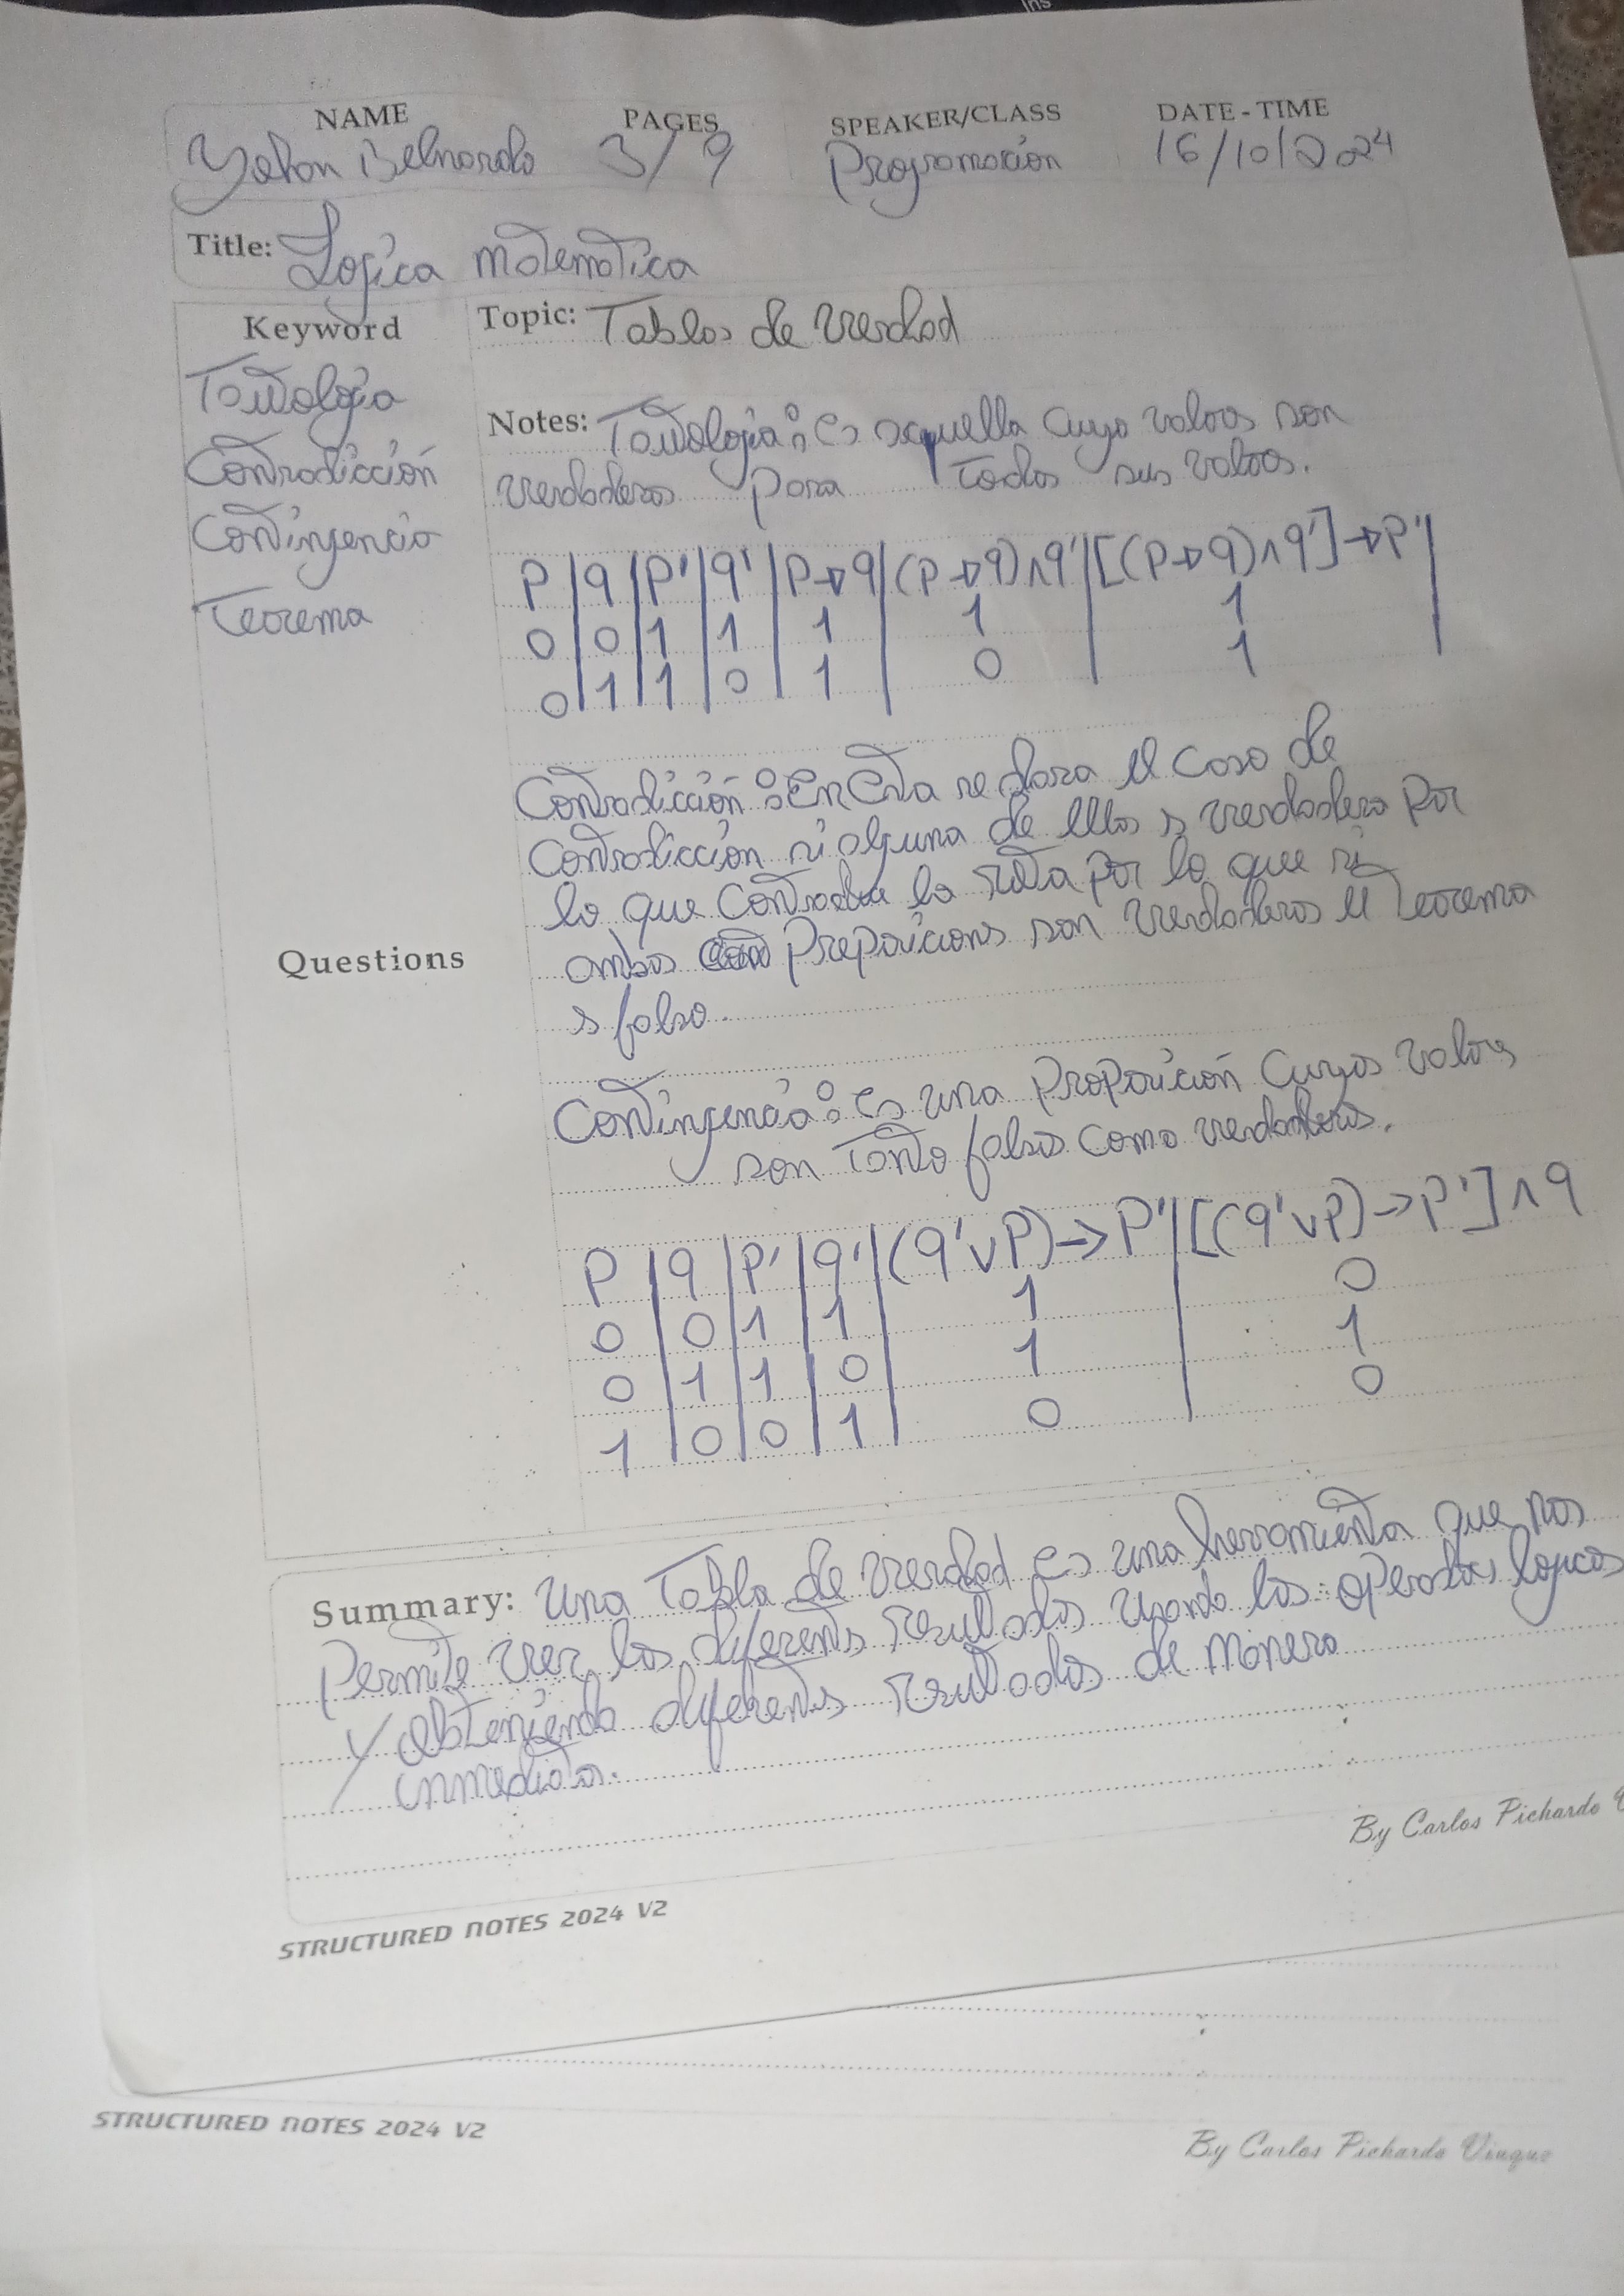 Ins
NAME PAGES SPEAKER/CLASS DATE-TIME
Yohan Belnardo 3/9 Programación 16/10/2024
Title: Logica matematica
Keyword
Tautologia
Contradicción
Contingencia
Teorema
Questions
Topic: Tablas de verdad
Notes: Tautologia: es aquella cuyo valors son
verdaderos para todos sus valors.
P | q | P' | q' | P→q | (P→q)∧q' | [(P→q)∧q']→P' |
0 | 0 | 1 | 1 | 1 | 1 | 1
0 | 1 | 1 | 0 | 1 | 0 | 1
Contradicción: En Esta se dara el caso de
Contradicción si alguna de ellas s verdadera por
lo que contradice la por lo que si
ambas preposicions son verdaderas el teorema
s falso.
Contingencia: es una proposición cuyos valors
son tanto falsos como verdaderos.
P | q | P' | q' | (q'∨P)→P' | [(q'∨P)→P']∧q
0 | 0 | 1 | 1 | 1 | 0
0 | 1 | 1 | 0 | 1 | 1
1 | 0 | 0 | 1 | 0 | 0
Summary: una Tabla de verdad es una herramienta que nos
Permite ver los diferents resultados usando los logicos
y obteniendo diferents resultados de manera
inmediata.
By Carlos Pichardo
STRUCTURED NOTES 2024 V2
STRUCTURED NOTES 2024 V2
By Carlos Pichardo Viuque